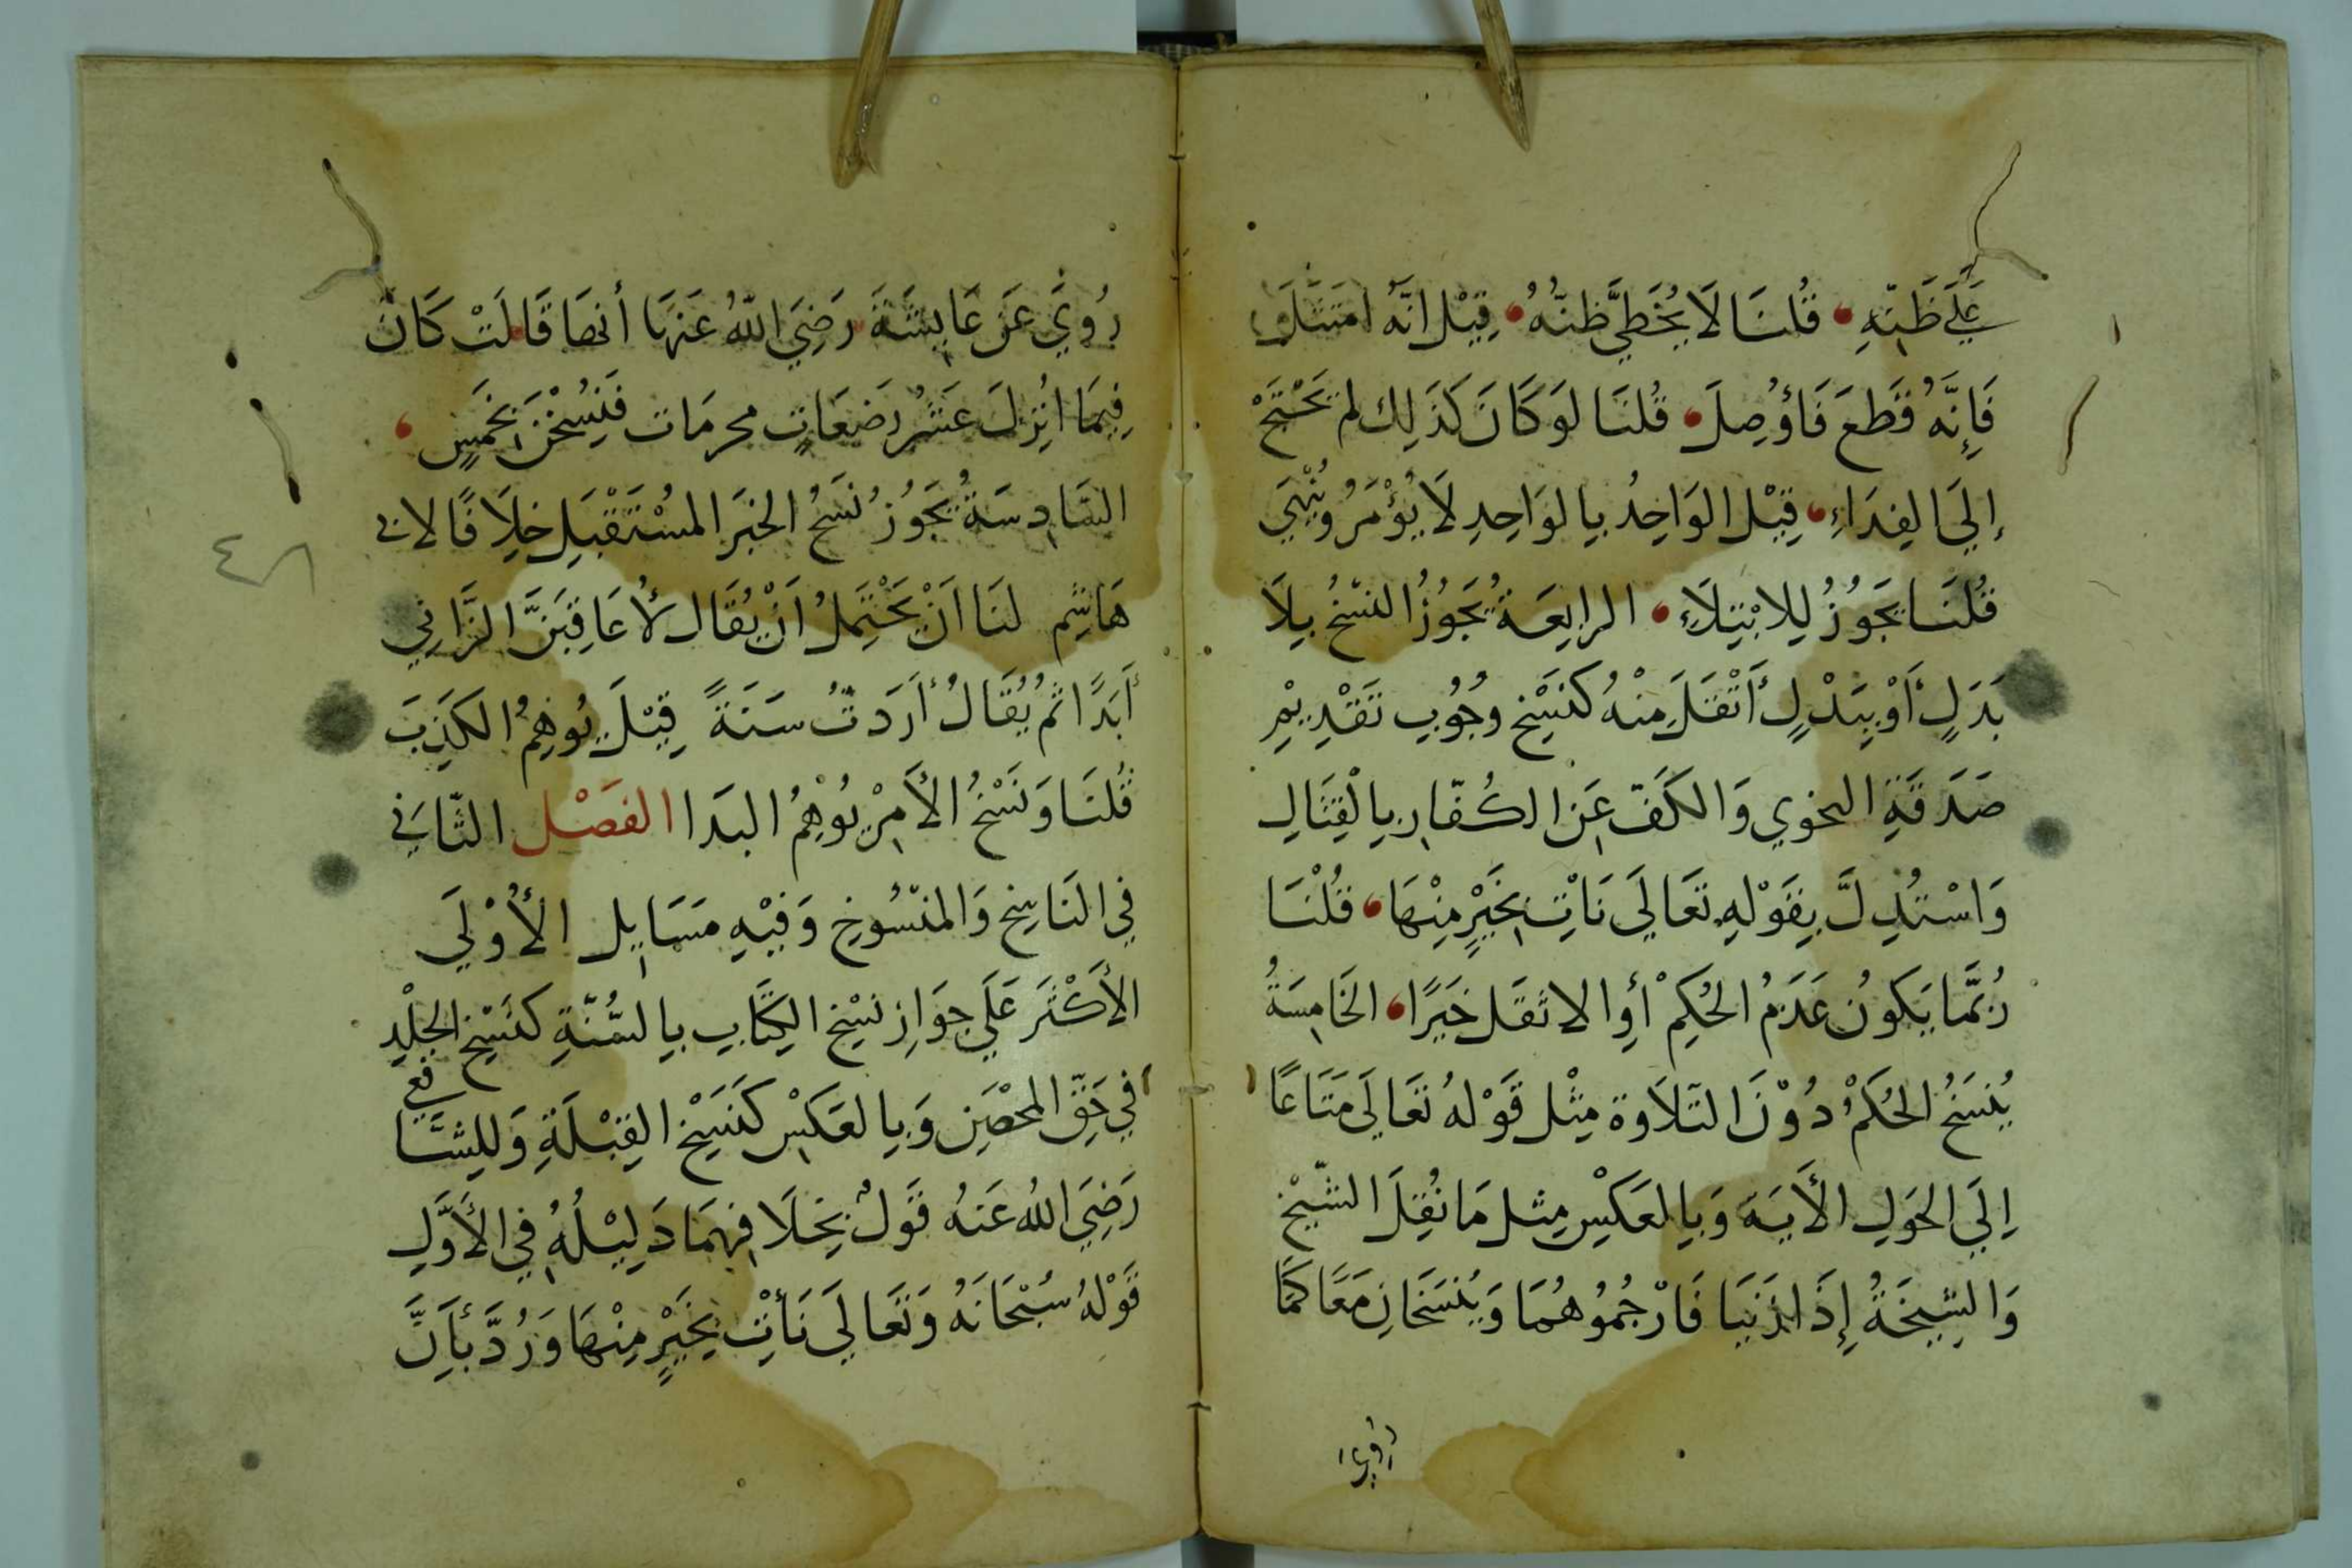 عَلَى ظَنِّهِ قُلنَا لَا يُخطِي ظنُّهُ قِيْل انَّهُ امتَثَلَ
فَإِنَّهُ قَطعَ فَأوُصِلَ قُلنَا لوَ كَانَ كَذَلِك لم يَحْتَجْ
إلَي الفِدَاءِ قِيْل الوَاحِدُ بِالوَاحِدِ لَا يُؤْمَرُ ويُنْهَي
قُلنَا يَجَوُزُ لِلابْتِلَاءِ الرابِعَة يَجَوُزُ النسْخُ بِلَا
بَدَلٍ أَوْ بِبَدْلٍ أَثْقَلَ مِنْهُ كَنَسْخِ وجُوُبِ تَقْدِيْمِ
صَدَقَةِ النجوي وَالكَفّ عَن الكُفّارِ بِالْقِتَالِ
وَاسْتُدِلَّ بِقَوْلِهِ تعَالَي نَاْتِ بِخَيْرٍ مِنْهَا قُلْنَا
رُبمَّا يَكوُن عَدَمُ الحُكِمْ أوِ الاثقَل خَيرًا الخَامِسَةُ
يُنسَخُ الحُكمْ دُوْنَ التّلَاوة مِثْل قَوْلهُ تعَالَي مَتَاعًا
اِلَي الحَولِ الأَيَة وَبِالعَكسْ مِثل مَا نُقِلَ الشّيْخ
وَالشّيخَةُ إِذَا زَنَيَا فَارْجُمُوهُمَا وَيُنسَخَانِ مَعًا كمَا
رُوِيَ عَن عَايِشَةَ رَضِيَ اللّهُ عَنهَا أنهَا قَالَتْ كَانَ
فِيمَا انُزِلَ عَشْرُ رَضعَاتٍ محرمَات فَنُسِخْنَ بِخَمسٍ
السَّادِسَةُ يَجَوُز نَسَخُ الخبَر المسُتَقْبَلِ خِلَافًا لابي
هَاشِم لنَا اَنْ يَحْتَمِلُ اَنْ يُقَال لأُعَاقِبَنَّ الزَّانِي
أَبَدًا ثُم يُقَالُ أرَدَتُ سَنَةً قِيْلَ يُوهِمُ الكَذِبَ
قُلنَا وَنَسْخُ الأَمرْ يُوْهِمُ البدَا الفصَْل الثّاني
فِي النَاسِخ وَالمنسُوخِ وَفِيْهِ مَسَايِل الأُوْلَي
الأَكْثَر عَلَي جوَازِ نسْخِ الكِتَابِ بِالسُّنّةِ كنَسْخِ الجلْدِ
فِي حَقِّ المحْصَنِ وَبِالعَكسِْ كَنَسْخِ القِبْلَةِ وَلِلشَا
فعي
رَضِيَ اللهُ عَنهُ قَولٌ بِخِلَافِهِمَا دَلِيْلُهُ فِي الأَوَّلِ
قَوْلهُ سُبْحَانَهُ وَتَعَالَى نَأْتِ بِخَيْرٍ مِنْهَا وَرُدَّ بأَنَّ
٤٨